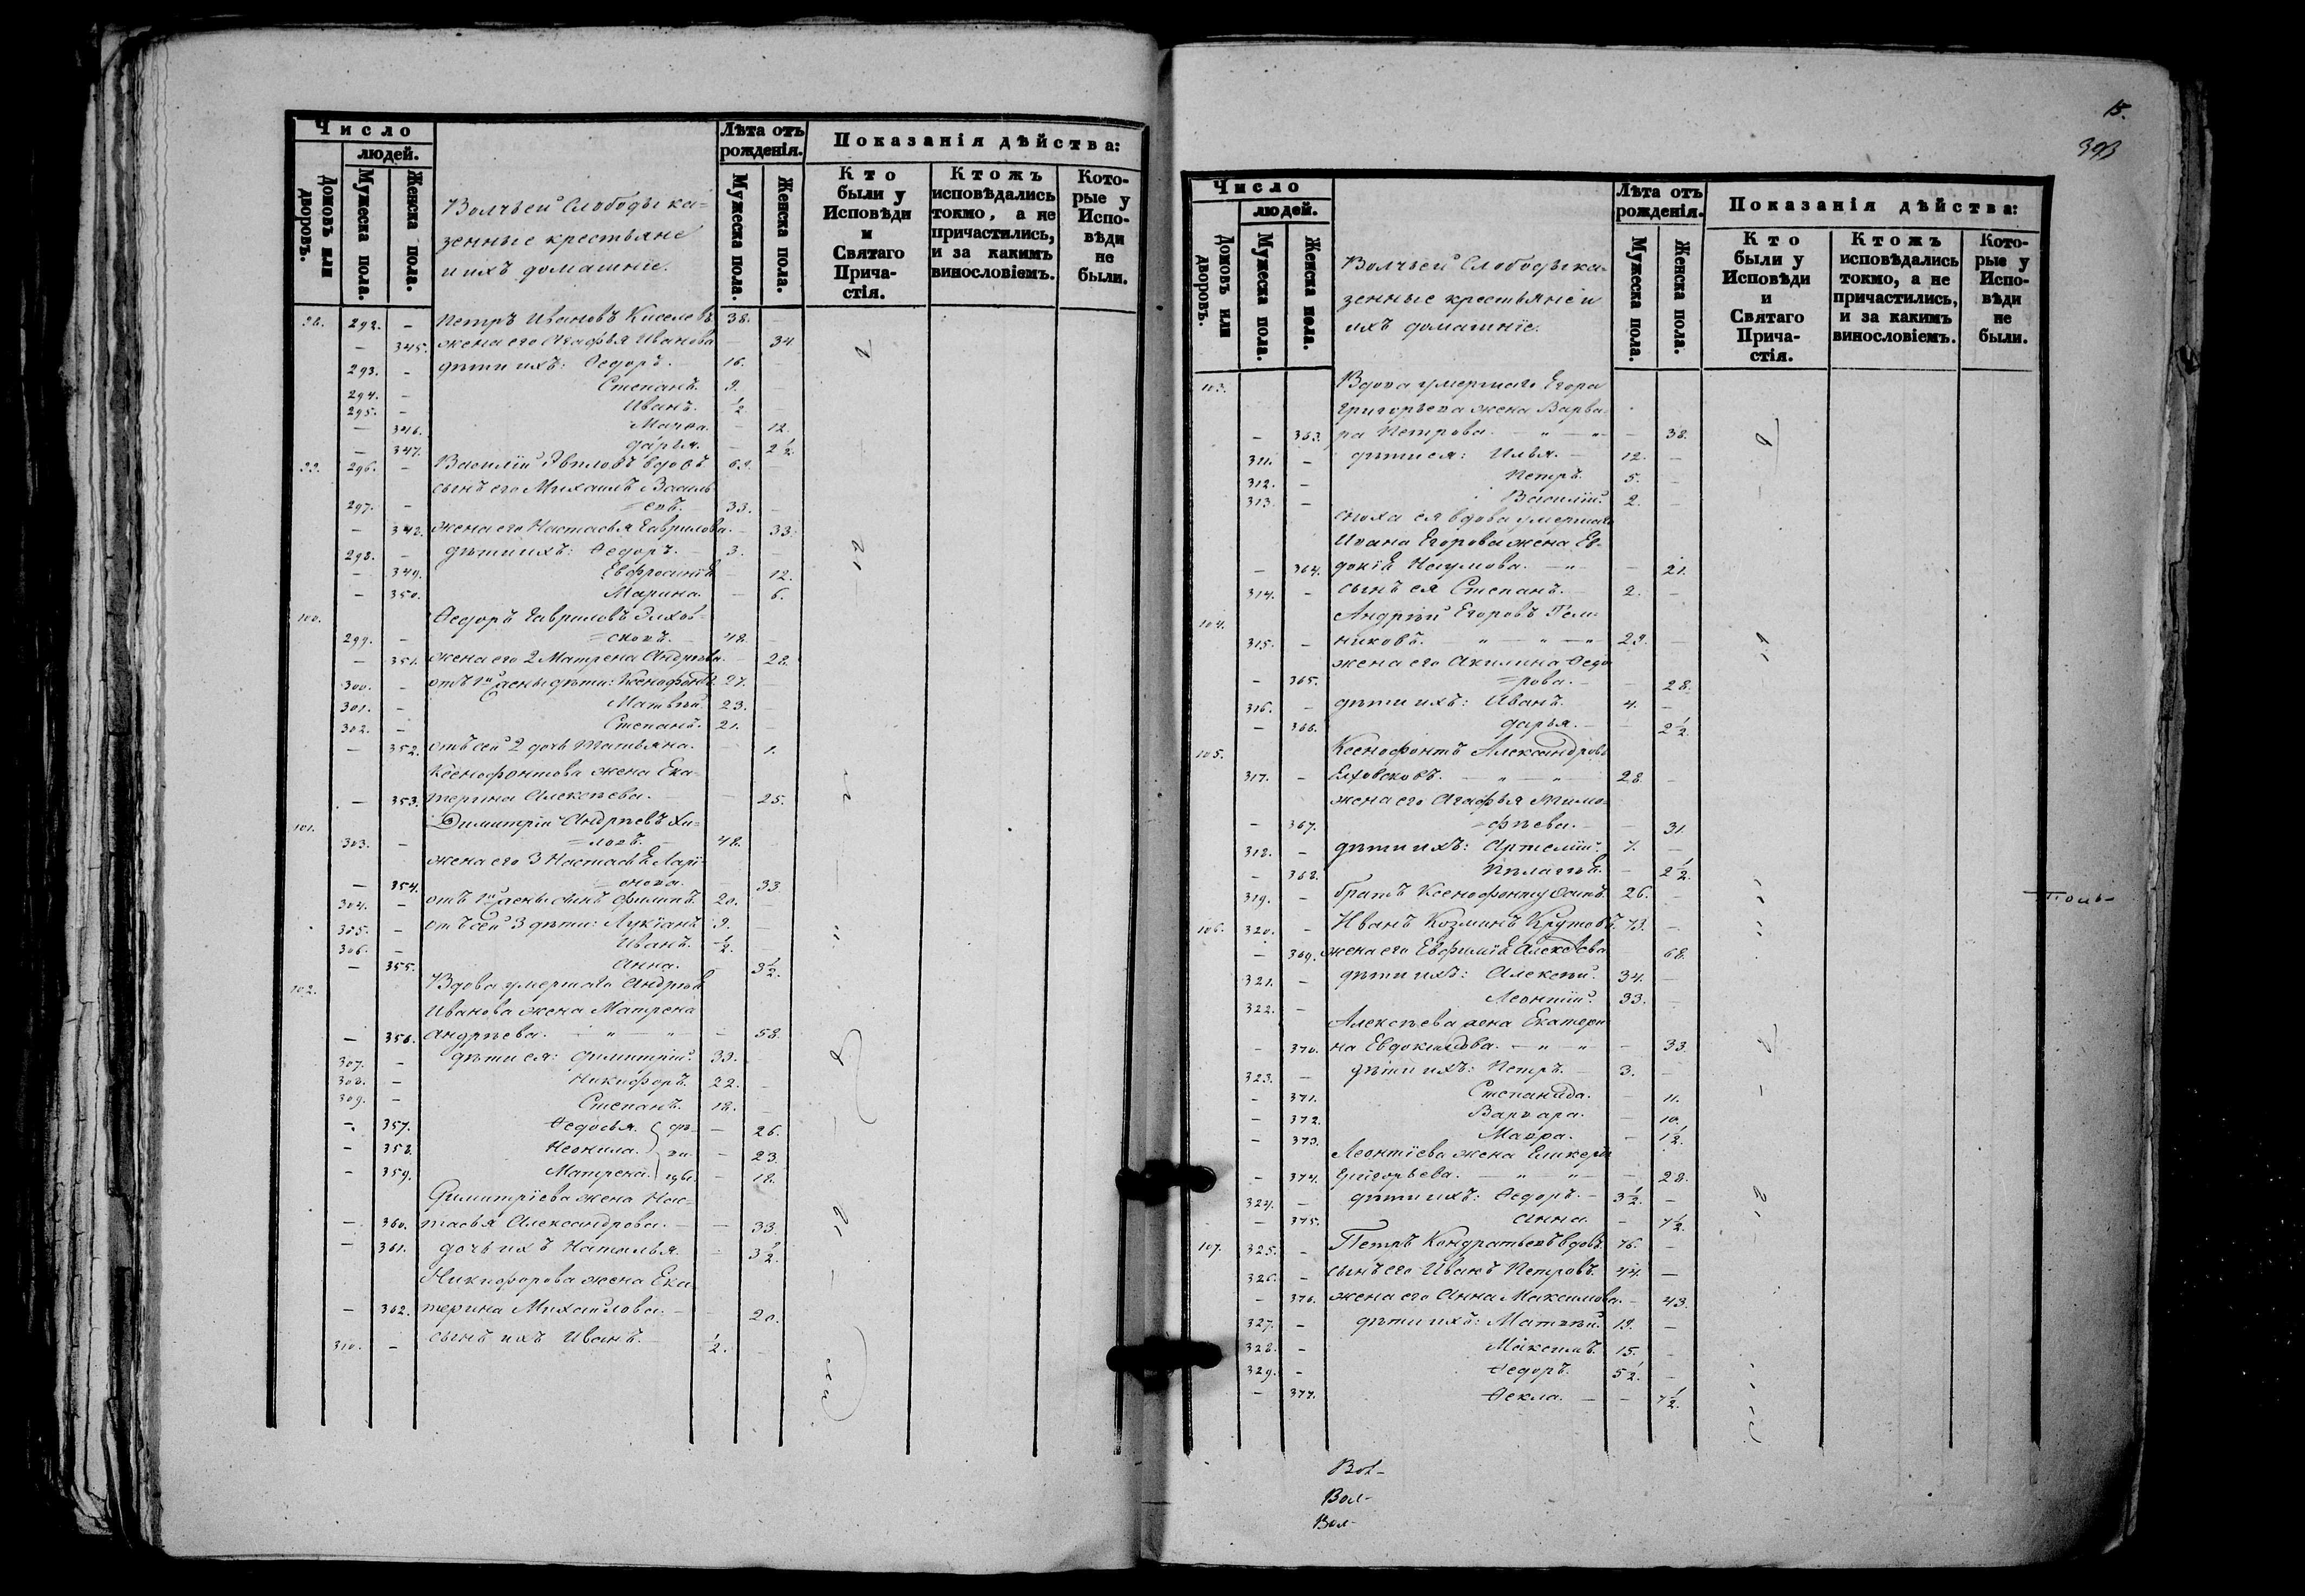 Число
людей.
Домовъ или дворовъ.
Мужеска пола.
Женска пола.
Волчьей Слободы ка=
зенные крестьяне
и ихъ домашніе.
Лѣта отъ рожденія.
Мужеска пола.
Женска пола.
Показанія дѣйства:
Кто были у Исповѣди и Святаго Причастія.
Ктожъ исповѣдались токмо, а не причастились, и за какимъ винословіемъ.
Которые у Исповѣди не были.
98. 292. – Петръ Ивановъ Киселевъ 38. –
– 345. жена его Агафья Иванова – 34
293. – дѣти ихъ: Ѳедоръ. 16. –
294. – Степанъ. 9. –
295. – Иванъ. ½ –
– 346. Марѳа. – 12.
– 347. Дарья. – 2½.
99. 296. – Василій вдовъ 62. –
сынъ его Михаилъ Василь
297. – =евъ. 33. –
– 348. жена его Настасья Гаврилова. – 33.
298. – дѣти ихъ: Ѳедоръ. 3. –
– 349. Евфросинія – 12.
– 350. Марина. – 6.
100. Ѳедоръ Гавриловъ Элхов=
299. – =сковъ. 48. –
– 351. жена его 2 Матрена Андрѣева. – 28.
300. – отъ 1й жены дѣти: Ксенофонтъ. 27. –
301. – Матвѣй. 23. –
302. – Степанъ. 21. –
– 352. отъ сей 2 дочь Татьяна. – 1.
Ксенофонтова жена Ека=
– 353. терина Алексѣева. – 25.
101. Димитрій Андреевъ Хи=
303. – =ловъ. 48. –
жена его 3 Настасья Лари
– 354. онова. – 33
304. – отъ 1й жены сынъ Филипъ. 20. –
305. – отъ сей 3 дѣти: Лукіанъ 9. –
306. – Иванъ. ½. –
– 355. Анна. – 3½.
102. Вдова умершаго Андрея
Иванова жена Матрена
– 356. Андрѣева. – „ – „ – 58.
307. – дѣти ея: Димитрій. 39. –
308. – Никифоръ. 22. –
309. – Степанъ. 18. –
– 357. Ѳедосья. дѣ– – 26.
– 358. Неонила. ви– – 23.
– 359. Матрена. цы. – 18.
Димитріева жена Нас=
– 360. тасья Александрова. – – 33
– 361. дочь ихъ Наталья. – 3½.
Никифорова жена Ека
– 362. терина Михайлова. – 20.
310. – сынъ ихъ Иванъ. ½. –
15.
393
Число
людей.
Домовъ или дворовъ.
Мужеска пола.
Женска пола.
Волчьей Слободы ка=
зенные крестьяне и
ихъ домашніе.
Лѣта отъ рожденія.
Мужеска пола.
Женска пола.
Показанія дѣйства:
Кто были у Исповѣди и Святаго Причастія.
Ктожъ исповѣдались токмо, а не причастились, и за какимъ винословіемъ.
Которые у Исповѣди не были.
103. Вдова умершаго Егора
Григорьева жена Варва
– 363. ра Петрова. – „ – „ – 38.
311. – дѣти ея: Илья. – 12. –
312. – Петръ. 5. –
313. – Василій. 2. –
сноха ея вдова умершаго
Ивана Егорова жена Ев=
– 364. докія Наумова. – „ – 21.
314. – сынъ ея Степанъ. 2. –
104. Андрей Егоровъ
315. – никовъ. „ – „ – „ 29. –
жена его Акилина Ѳедо
– 365. =рова. – 28.
316. – дѣти ихъ: Иванъ. 4. –
– 366. Дарья. – 2½.
105. Ксенофонтъ Александровъ
317. – Елховсковъ. – „ – „ 28. –
жена его Агафья Тимо=
– 367. =фѣева. – 31.
318. – дѣти ихъ: Артемій. 7. –
– 368. Пелагея. – 2½.
319. – братъ Ксенофонту Осипъ. 26. –
Поль–
106. 320. – Иванъ Козминъ Крутовъ. 73. –
– 369. жена его Евфимія Алексѣева – 68.
321. – дѣти ихъ: Алексѣй. 34. –
322. – Леонтій. 33. –
Алексѣева жена Екатери
– 370. на Евдокимова. – „ – „ – 33.
323. – дѣти ихъ: Петръ. 3. –
– 371. Степанида. – 11.
– 372. Варвара. – 10.
– 373. Мавра. – 1½.
Леонтіева жена Гликерія
– 374. Григорьева. – „ – „ – 28.
324. – дѣти ихъ: Ѳедоръ. 3½. –
– 375. Анна. – 7½.
107. 325. – Петръ Кондратьевъ вдовъ. 76. –
326. – сынъ его Иванъ Петровъ. 44. –
– 376. жена его Анна Максимова. – 43.
327. – дѣти ихъ: Матвѣй. 19. –
328. – Максимъ. 15. –
329. – Ѳедоръ. 5½. –
– 377. Ѳекла. – – 7½.
Вол–
Вол–
Вол–